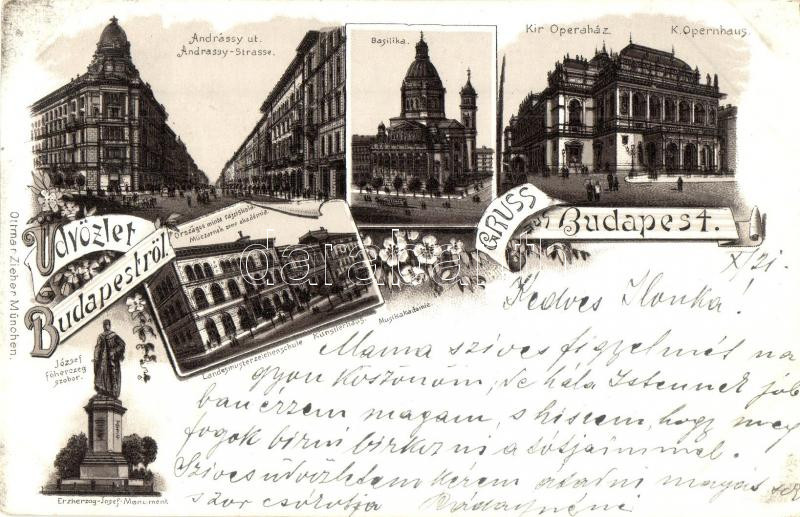 Andrássy ut.
Andrassy-Strasse.
Basilika.
Kir Operaház
K. Opernhaus.
Üdvözlet
Budapestről.
GRUSS
aus
Budapest.
Országos minta rajziskola
Műcsarnok zene akadémia.
Landesmusterzeichenschule Künstlerhaus. Musikakademie.
darabanth
József
főherczeg
szobor.
Erzherzog-Josef-Monument
Ottmar Zieher, München.
X/21.
Kedves Ilonka!
Mama szives figyelmét na
gyon köszönöm, de hála Istennek jób
ban érzem magam, s hiszem, hogy meg
fogok birni birkozni a tótjaimmal.
Szives üdvözletem kérem átadni magát
szor csókolja